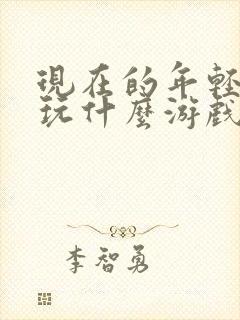 現在的年輕
玩什麼游戲
李智勇